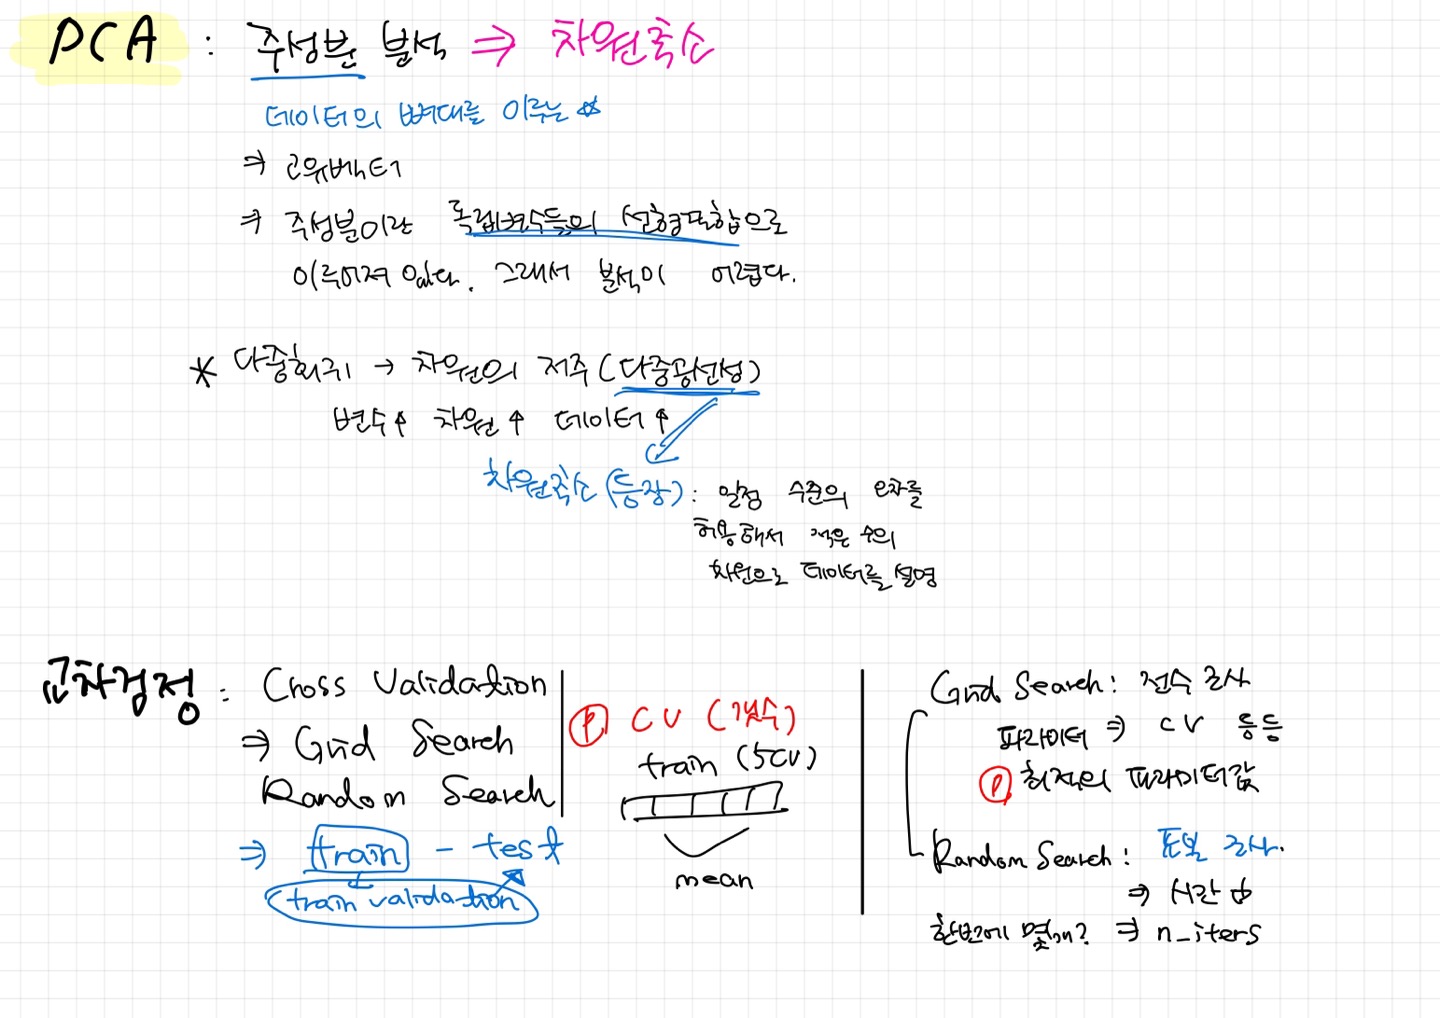 PCA : 주성분 분석 ⇒ 차원축소
데이터의 뼈대를 이루는 ☆
⇒ 고유벡터
⇒ 주성분이란 독립변수들의 선형결합으로
이루어져 있다. 그래서 분석이 어렵다.
* 다중회귀 → 차원의 저주 (다중공선성)
변수↑ 차원↑ 데이터↑
차원축소 (등장) : 일정 수준의 오차를
허용해서 적은 수의
차원으로 데이터를 설명
교차검정 : Cross Validation
⇒ Grid Search
Random Search
⇒ train - test
train validation
Ⓟ CV (갯수)
train (5CV)
mean
Grid Search : 전수 조사
파라미터 ⇒ CV 등등
Ⓟ 최적의 파라미터값
Random Search : 표본 조사.
⇒ 시간 ↓
한번에 몇개? ⇒ n_iters